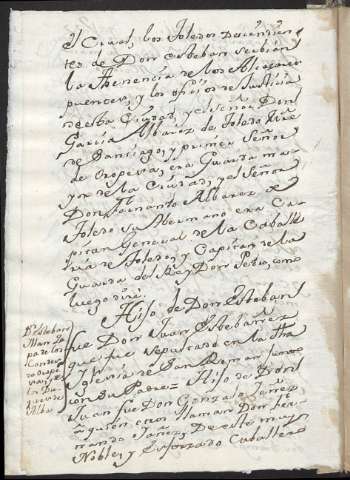 el Cual, los Toledos Descendien
tes de Don Esteban
la Tenencia de los Alcazares
puentes, y los oficios de Justicia
de esta Ciudad, y el señor Don
Garcia Albarez de Toledo
de Santiago, y primer Señor
de Oropesa, era Guarda ma
yor de la Ciudad, y el señor
Don Fernando Albarez de
Toledo su Hermano era Ca
pitan General de la Caball
ria de Toledo, y Capitan de la
Guarda del Rey Don Pedro, como
luego diré.
Hijo de Don Esteban
fue Don Juan Estebañez
que fue sepultado en la
Yglesia de San Roman
con su Padre. Hijo de Don
Juan fue Don Gonzalo
quien otros llaman Don Fer
nando Yañez, de este muy
Noble, y Esforzado Caballero
Dn Esteban
Illan
pa de los
Condes
de Orope
sa, y
los Du
ques de
Alba